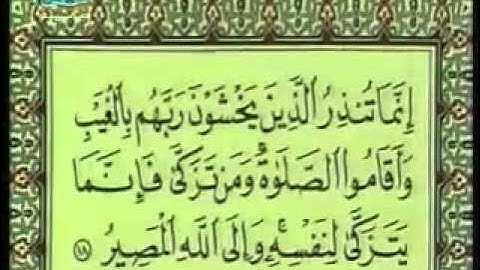 إِنَّمَا تُنذِرُ ٱلَّذِينَ يَخْشَوْنَ رَبَّهُم بِٱلْغَيْبِ
وَأَقَامُوا۟ ٱلصَّلَوٰةَ ۚ وَمَن تَزَكَّىٰ فَإِنَّمَا
يَتَزَكَّىٰ لِنَفْسِهِۦ ۚ وَإِلَى ٱللَّهِ ٱلْمَصِيرُ ١٨